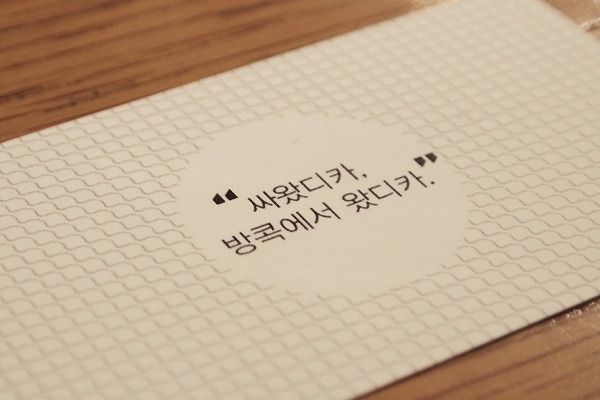 “ 싸왔디카,
방콕에서 왔디카. ”